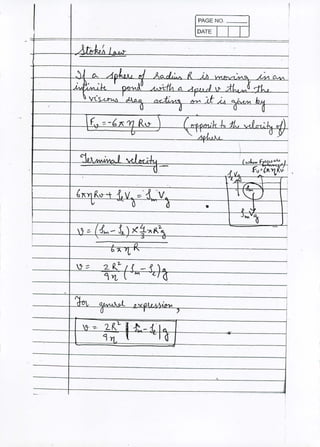 PAGE NO.
DATE
Stoke's Law
If a sphere of radius R is moving in an
infinite pond with a speed v then the
viscous drag acting on it is given by
Fv = -6πηRv (opposite to the velocity of
sphere
Terminal velocity
6πηRv + ρeVg = ρmVg
v = (ρm - ρe) × 4/3 πR³g
6πηR
v = 2R²/9η (ρm - ρe)g
For general expression,
v = 2R²/9η |ρm - ρe|g
ρeVg
Fv = 6πηRv
ρmVg